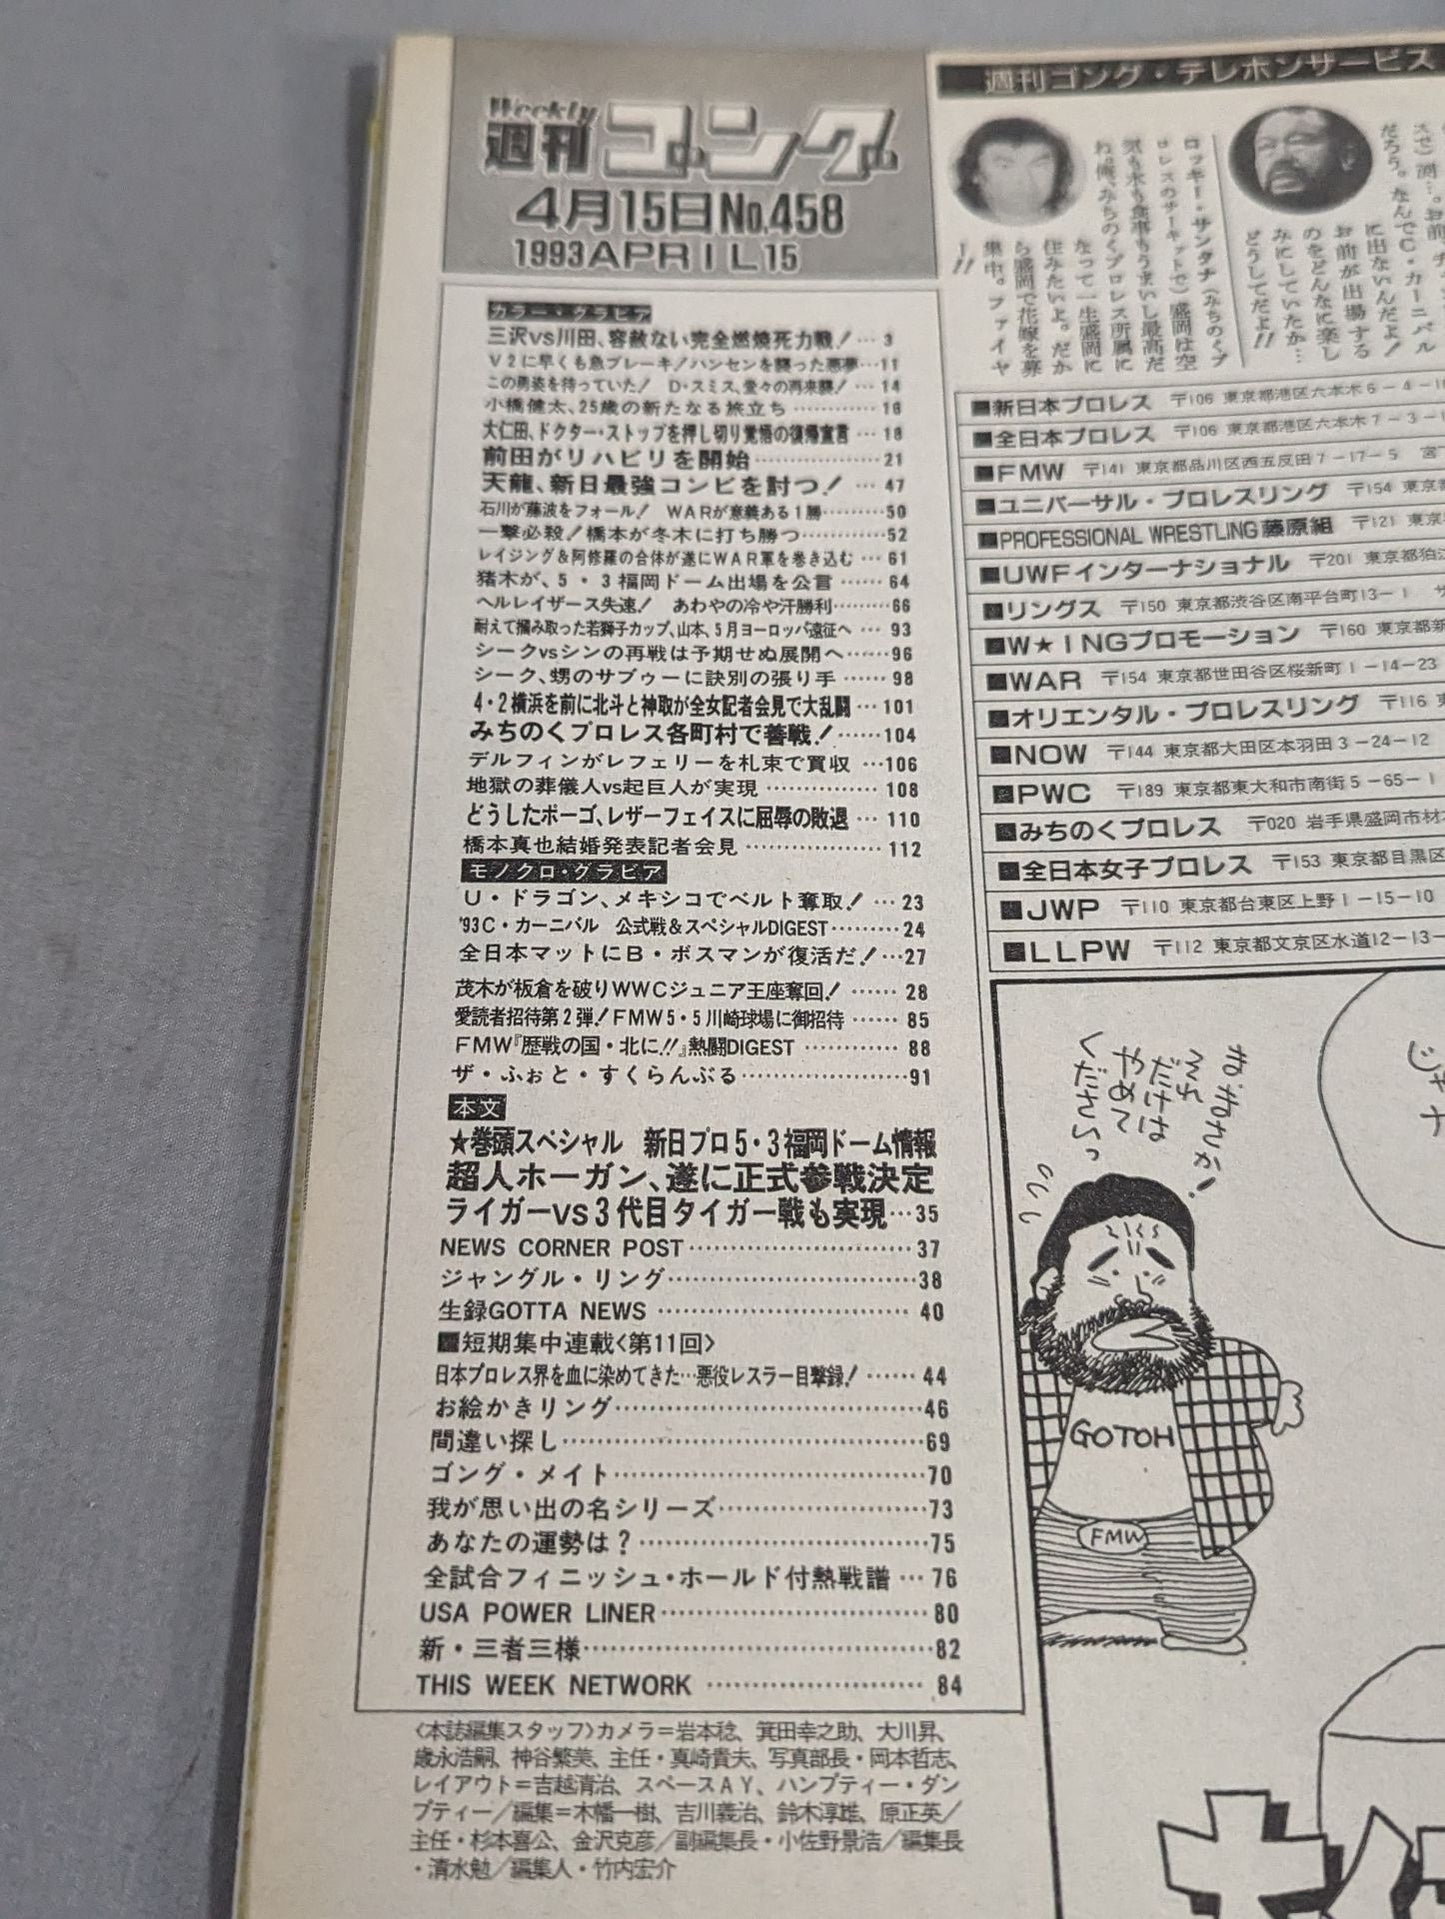 Weekly
週刊ゴング
4月15日No.458
1993 APRIL 15
カラー・グラビア
三沢vs川田、容赦ない完全燃焼死力戦!… 3
V2に早くも急ブレーキ/ハンセンを襲った悪夢…11
この勇姿を待っていた! D・スミス、堂々の再来襲!… 14
小橋健太、25歳の新たなる旅立ち………… 16
大仁田、ドクター・ストップを押し切り覚悟の復帰宣言… 18
前田がリハビリを開始……………… 21
天龍、新日最強コンビを討つ!… 47
石川が藤波をフォール! WARが意義ある1勝………50
一撃必殺!橋本が冬木に打ち勝つ…………52
レイジング&阿修羅の合体が遂にWAR軍を巻き込む… 61
猪木が、5・3福岡ドーム出場を公言…… 64
ヘルレイザース失速! あわやの冷や汗勝利………66
耐えて掴み取った若獅子カップ、山本、5月ヨーロッパ遠征へ… 93
シークvsシンの再戦は予期せぬ展開へ……96
シーク、甥のサブゥーに訣別の張り手…… 98
4・2横浜を前に北斗と神取が全女記者会見で大乱闘… 101
みちのくプロレス各町村で善戦!……104
デルフィンがレフェリーを札束で買収…106
地獄の葬儀人vs起巨人が実現…………… 108
どうしたポーゴ、レザーフェイスに屈辱の敗退… 110
橋本真也結婚発表記者会見……………… 112
モノクロ・グラビア
U・ドラゴン、メキシコでベルト奪取!… 23
'93C・カーニバル 公式戦&スペシャルDIGEST………24
全日本マットにB・ボスマンが復活だ!…27
茂木が板倉を破りWWCジュニア王座奪回!…… 28
愛読者招待第2弾!FMW5・5川崎球場に御招待…… 85
FMW『歴戦の国・北に!!』熱闘DIGEST………… 88
ザ・ふぉと・すくらんぶる………………91
本文
★巻頭スペシャル 新日プロ5・3福岡ドーム情報
超人ホーガン、遂に正式参戦決定
ライガーvs3代目タイガー戦も実現…35
NEWS CORNER POST……………………37
ジャングル・リング………………………38
生録GOTTA NEWS……………………… 40
■短期集中連載〈第11回〉
日本プロレス界を血に染めてきた…悪役レスラー目撃録!…… 44
お絵かきリング……………………………46
間違い探し…………………………………69
ゴング・メイト……………………………70
我が思い出の名シリーズ…………………73
あなたの運勢は?…………………………75
全試合フィニッシュ・ホールド付熱戦譜… 76
USA POWER LINER………………………80
新・三者三様………………………………82
THIS WEEK NETWORK………………… 84
〈本誌編集スタッフ〉カメラ=岩本稔、箕田幸之助、大川昇、
歳永浩嗣、神谷繁美、主任・真崎貴夫、写真部長・岡本哲志、
レイアウト=吉越清治、スペースAY、ハンプティー・ダン
プティー/編集=木幡一樹、吉川義治、鈴木淳雄、原正英/
主任・杉本喜公、金沢克彦/副編集長・小佐野景浩/編集長
・清水勉/編集人・竹内宏介
週刊ゴング・テレホンサービス
だろう。なんでC・カーニバル
に出ないんだよ!
お前が出場する
のをどんなに楽し
みにしていたか…
どうしてだよ!!
ロッキー・サンタナ(みちのくプ
ロレスのサーキットで)盛岡は空
気も水も食事もうまいし最高だ
ね。俺、みちのくプロレス所属に
なって一生盛岡に
住みたいよ。だか
ら盛岡で花嫁を募
集中。ファイヤ
ー!!
■新日本プロレス 〒106 東京都港区六本木6-4-10
■全日本プロレス 〒106 東京都港区六本木7-3-
■FMW 〒141 東京都品川区西五反田7-17-5 宮
■ユニバーサル・プロレスリング 〒154 東京都
■PROFESSIONAL WRESTLING藤原組 〒121 東京
■UWFインターナショナル 〒201 東京都狛江
■リングス 〒150 東京都渋谷区南平台町13-1
■W★INGプロモーション 〒160 東京都新
■WAR 〒154 東京都世田谷区桜新町1-14-23
■オリエンタル・プロレスリング 〒116
■NOW 〒144 東京都大田区本羽田3-24-12
■PWC 〒189 東京都東大和市南街5-65-1
■みちのくプロレス 〒020 岩手県盛岡市材木
■全日本女子プロレス 〒153 東京都目黒区
■JWP 〒110 東京都台東区上野1-15-10
■LLPW 〒112 東京都文京区水道12-13-
ま、まさか!
それ
だけは
やめて
くださいっ
GOTOH
FMW